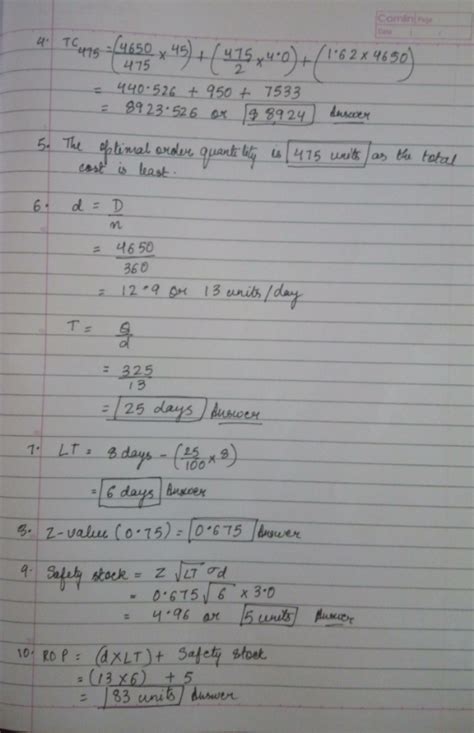 Camlin Page
Date / /
4. TC475 = (4650/475 × 45) + (475/2 × 4.0) + (1.62 × 4650)
= 440.526 + 950 + 7533
= 8923.526 or $ 8924 Answer
5. The optimal order quantitity is 475 units as the total
cost is least.
6. d = D/n
= 4650/360
= 12.9 or 13 units/day
T = Q/d
= 325/13
= 25 days Answer
7. LT = 8 days - (25/100 × 8)
= 6 days Answer
8. Z-value (0.75) = 0.675 Answer
9. Safety stock = Z √LT σd
= 0.675 √6 × 3.0
= 4.96 or 5 units Answer
10. ROP = (d×LT) + Safety stock
= (13×6) + 5
= 83 units Answer